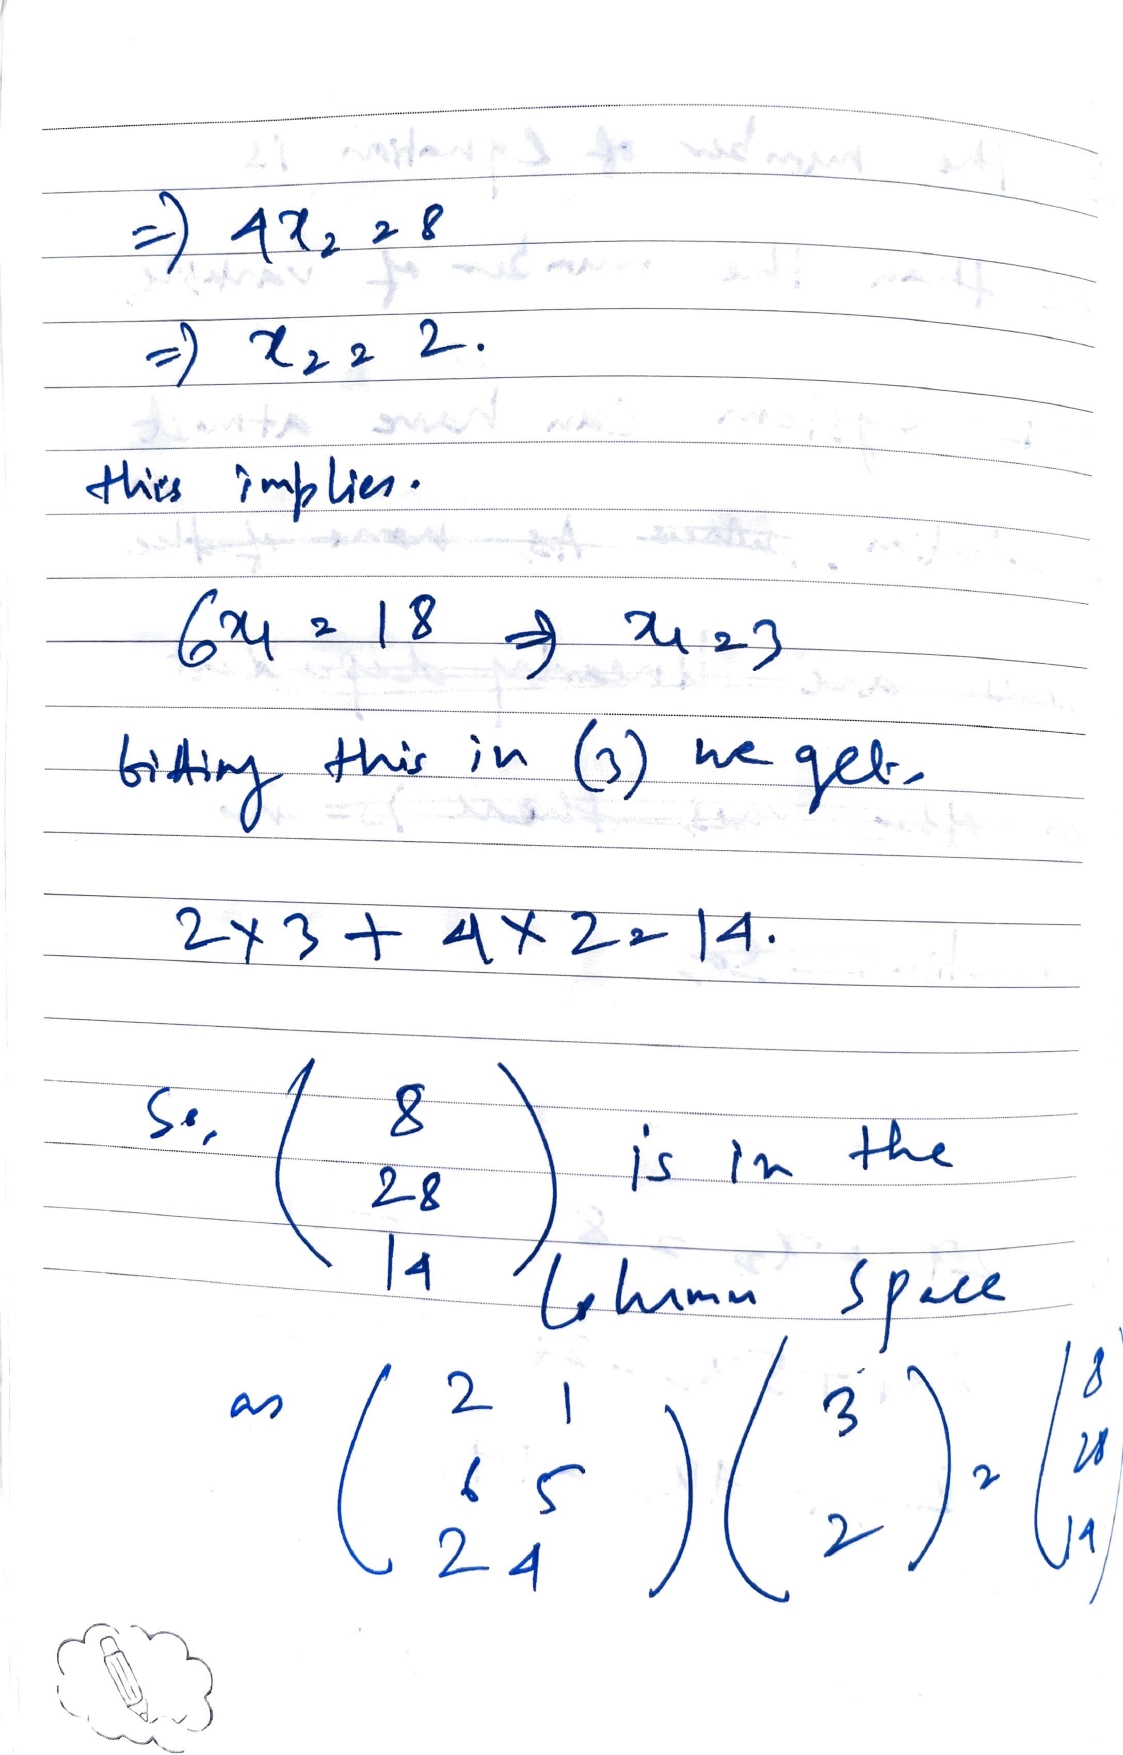 => 4x₂ = 8
=> x₂ = 2.
this implies.
6x₁ = 18 => x₁ = 3
this in (3) we get,
2 × 3 + 4 × 2 = 14.
So, ( 8 28 14 ) is in the
Column Space
as ( 2 1 6 5 2 4 ) ( 3 2 ) = ( 8 28 14 )